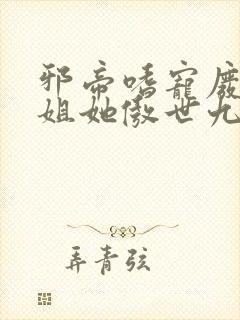 邪帝嗜宠废
姐她傲世九
弄青弦